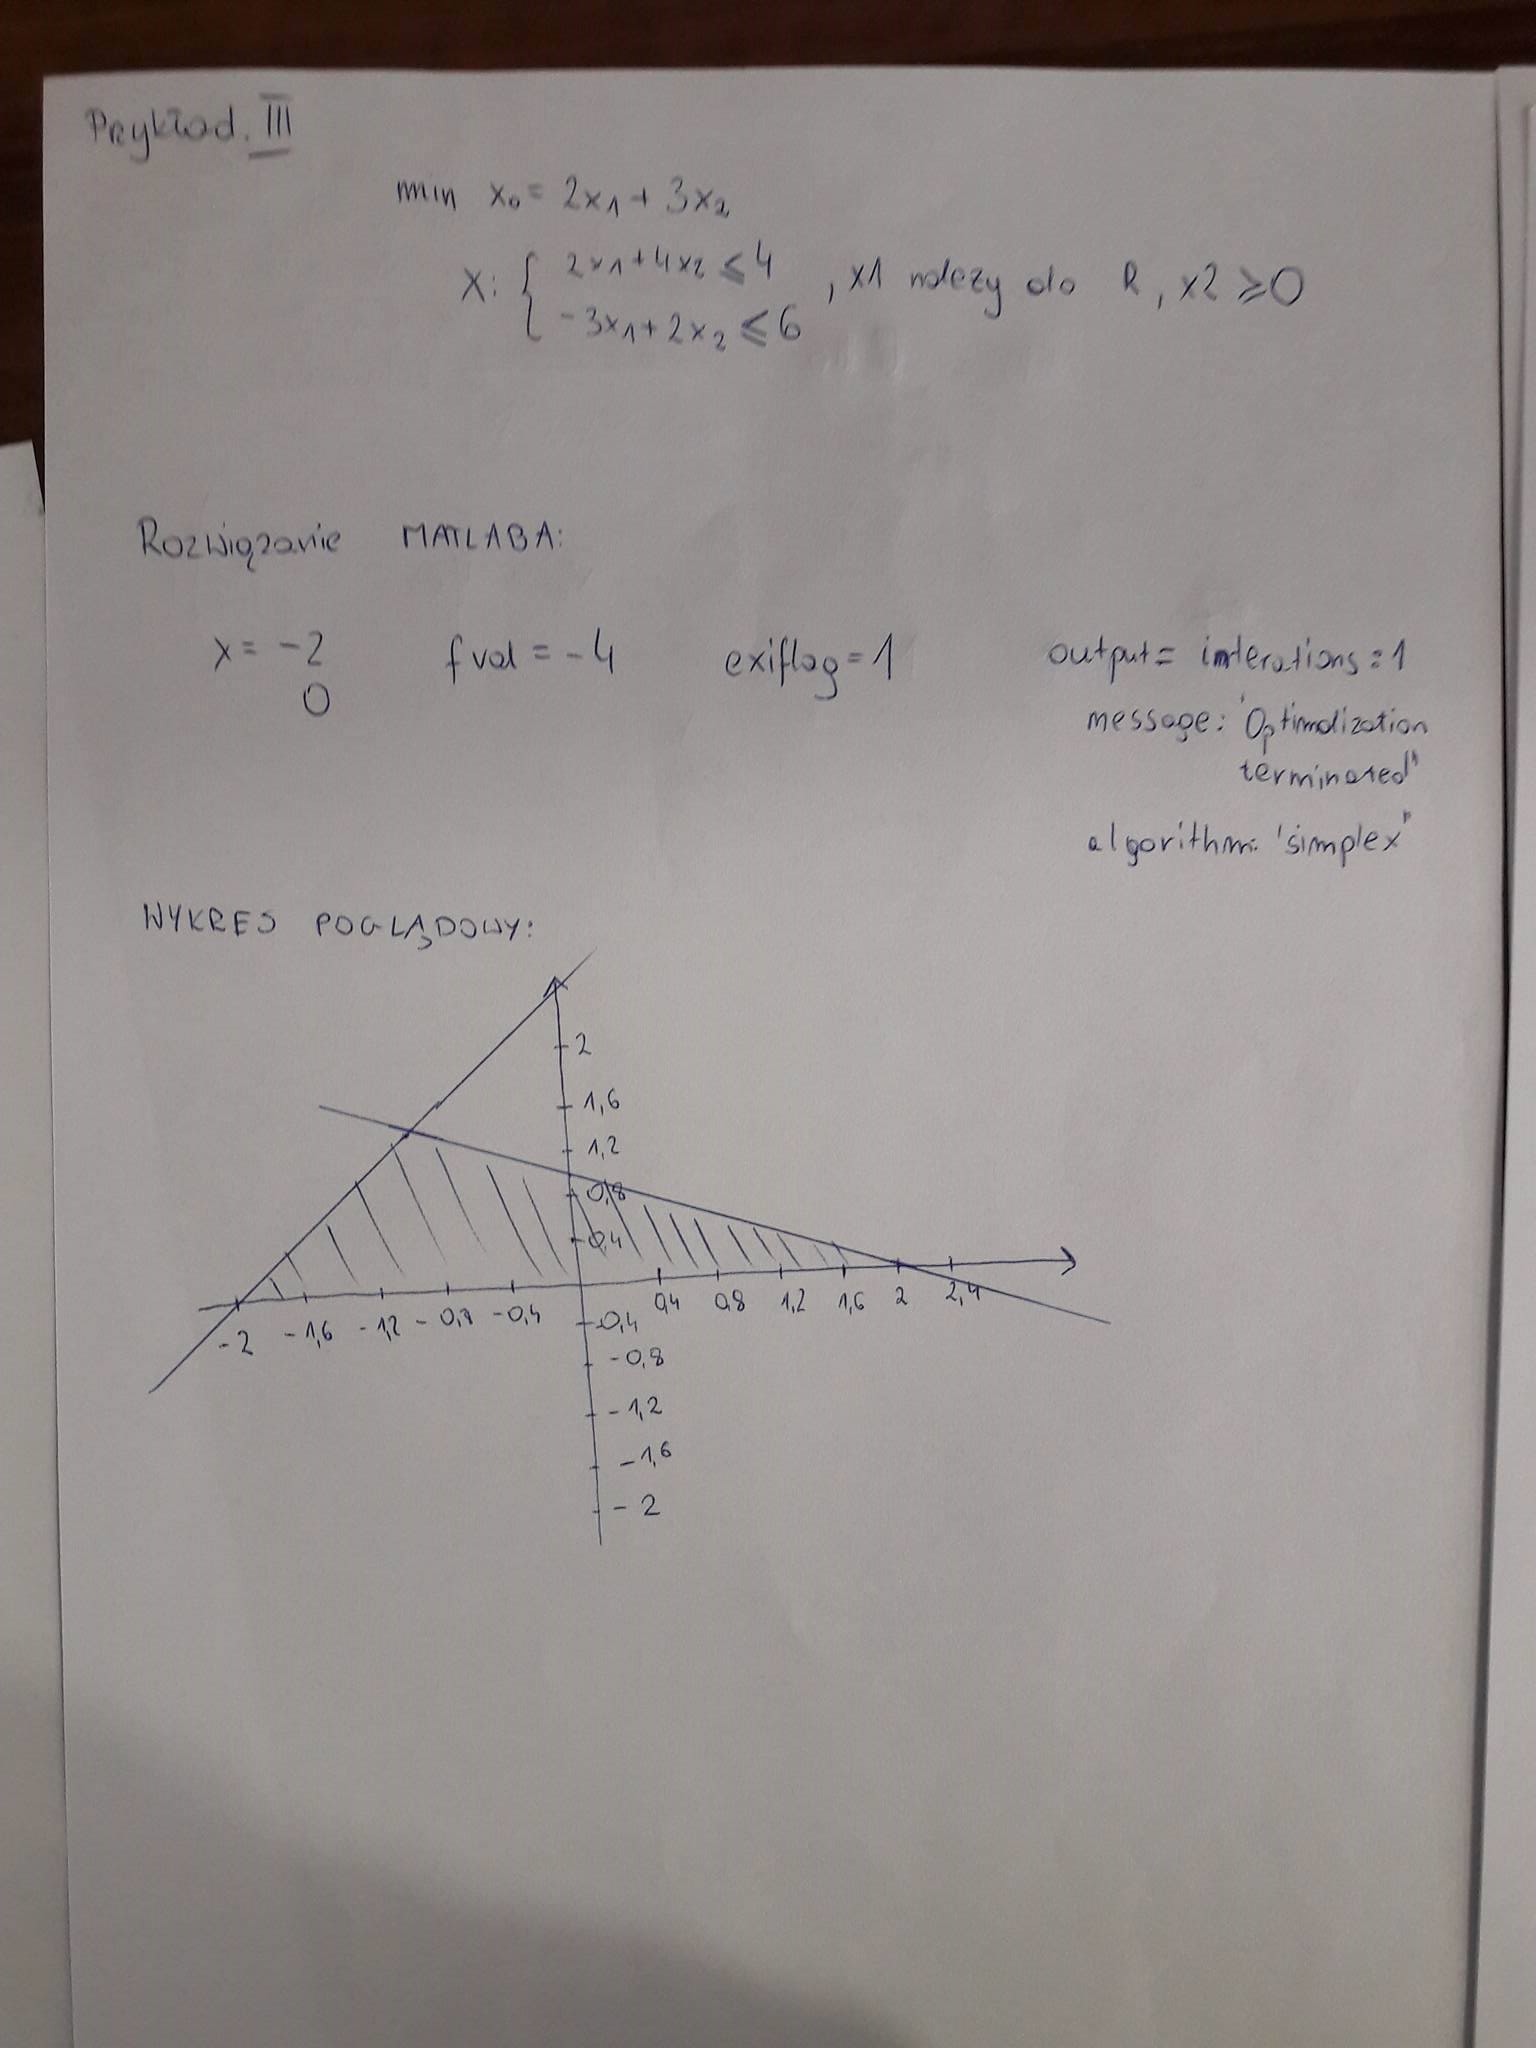 Przykład. III
min x₀ = 2x₁ + 3x₂
X: { 2x1+4x2 ≤ 4 , x1 należy do R, x2 ≥ 0
-3x₁+2x₂ ≤ 6
Rozwiązanie MATLABA:
x = -2 fval = -4 exiflag = 1 output = interations: 1
0 message: 'Optimalization
terminated"
algorithm: 'simplex"
WYKRES POGLĄDOWY:
2
1,6
1,2
0,8
0,4
-2 -1,6 -1,2 -0,8 -0,4 0,4 0,8 1,2 1,6 2 2,4
-0,4
-0,8
-1,2
-1,6
-2